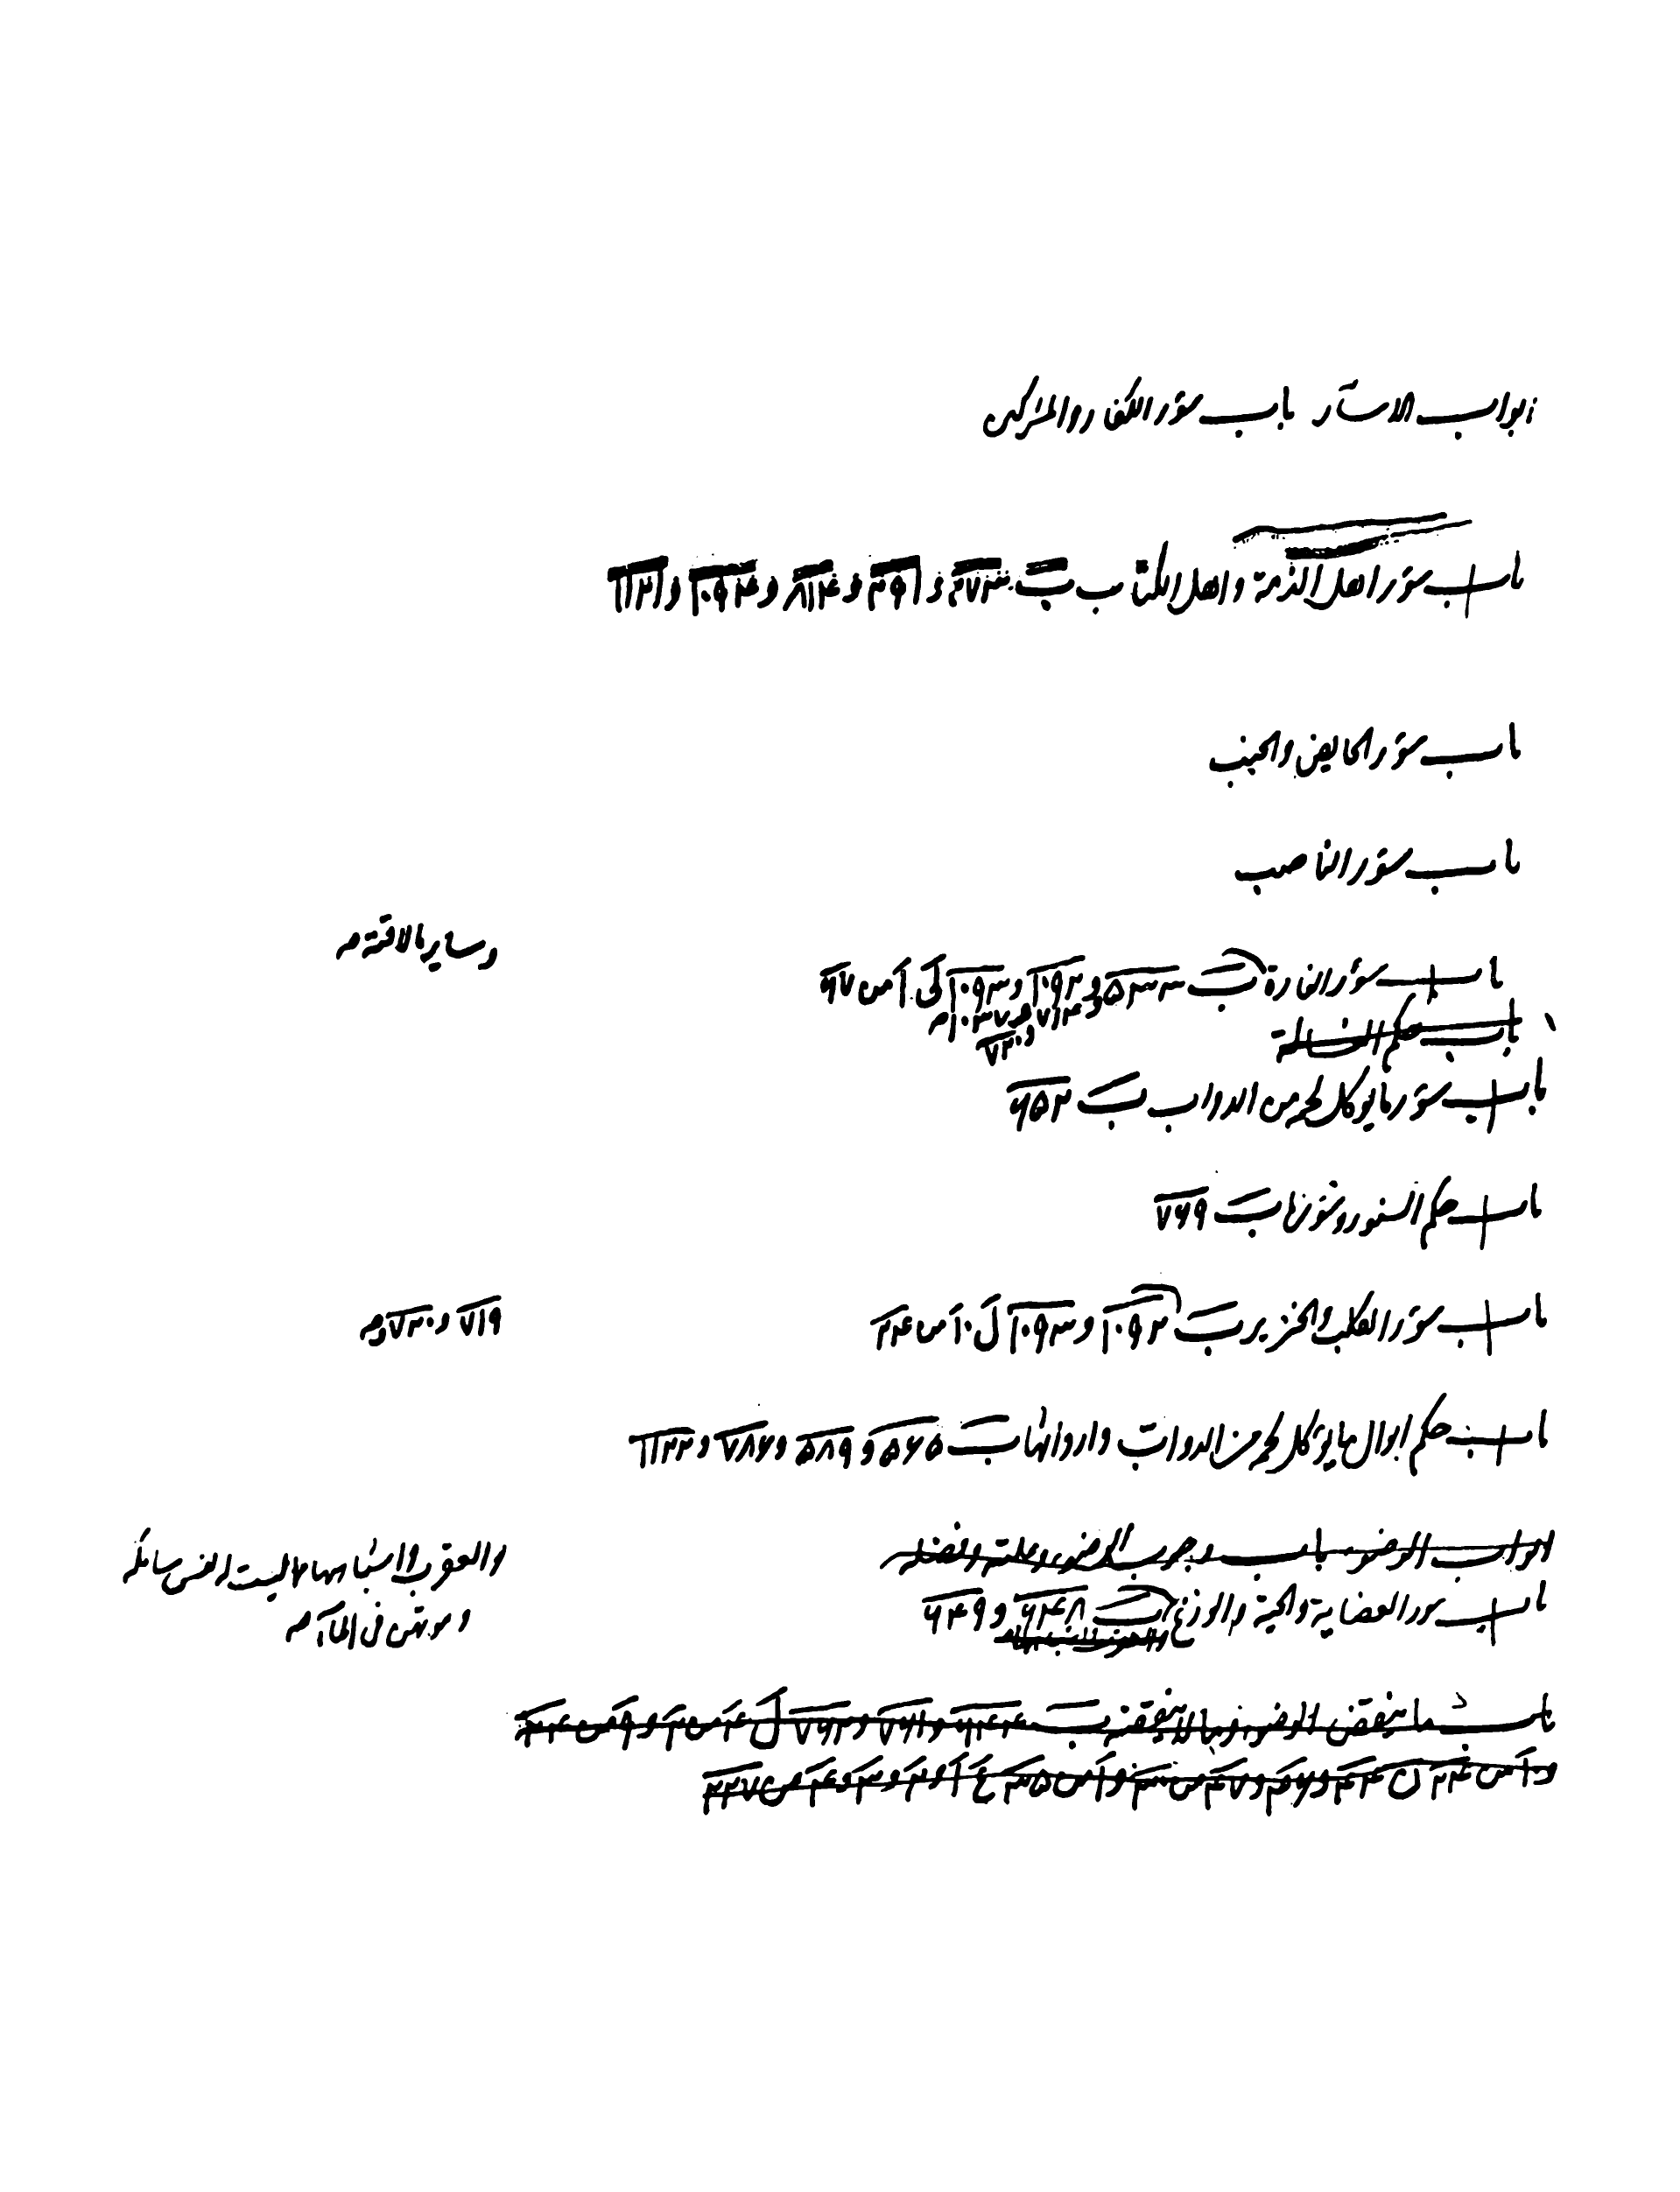 ابواب الاسآر باب سؤر الكفار والمشركين
باب سؤر اهل الذمة واهل الكتاب ب ٢٧٣ و ٣٩١ و ٨١٤ و ١٠٩٤ و ١١٣١
باب سؤر الحايض والجنب
باب سؤر الناصب
باب سؤر الفارة ب ٥٣٣ و ١٠٩٢ و ١٠٩٣ لى ١ من ٦٧
و ٧١٤ و ١٠٣٧ م
و ٧٣٠
وساير مالا
باب حكم
باب سؤر مايوكل لحمه من الدواب ب ٦٥٢
باب حكم السنور وسؤرها ب ٧٦٩
باب سؤر الكلب والخنزير ب ١٠٩٢ و ١٠٩٣ ل ١٠ من ٢٤
٧١٩ و ٧٣٠ م
باب حكم ابوال مايؤكل لحمه من الدواب وارواثها ب ٥٦٥ و ٥٨٩ و ٧٨٦ و ١١٢٢
ابواب الوضوء باب وجوب الوضوء وعلته وفضله
باب سور العضاية والحية والوزغ ب ٦٤٨ و ٦٤٩
والعقرب واشباهها مما ليست له نفس سائله
وموتهن فى الماء م
باب ما ينقض الوضوء ومالا ينقضه ب ٦٤٤ و ٧٦١ و ٧٦٢ ل ٤ من ٢ و ٩ من ٢٤